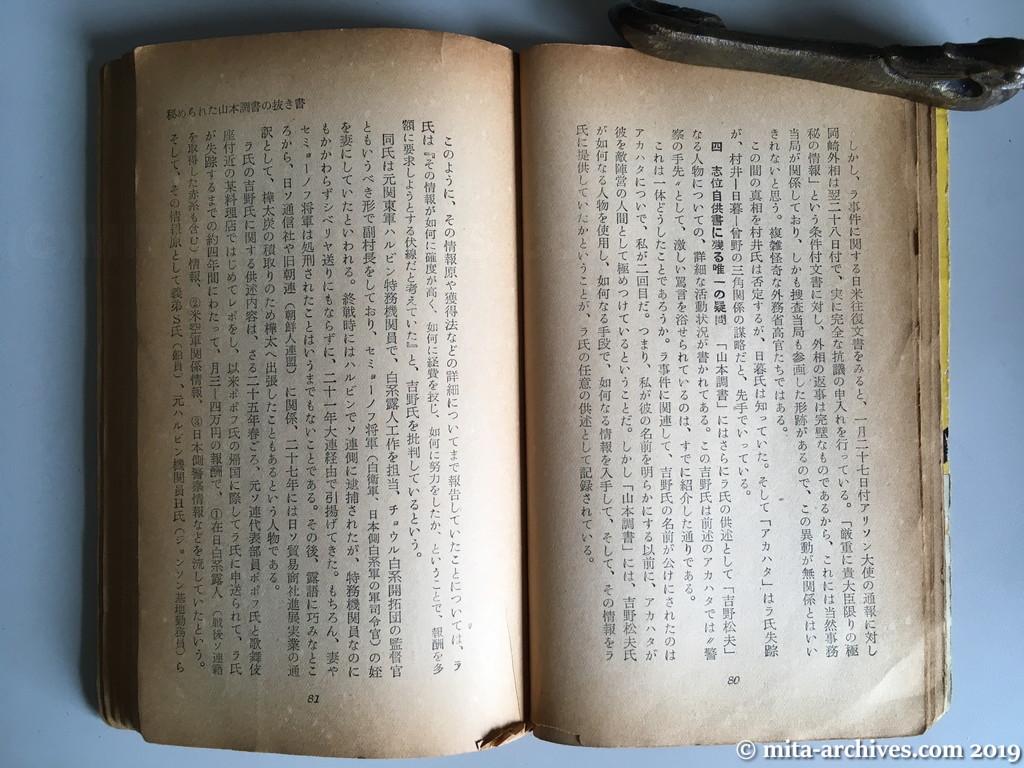 しかし、ラ事件に関する日米往復文書をみると、一月二十七日付アリソン大使の通報に対し
岡崎外相は翌二十八日付で、実に完全な抗議の申入れを行っている。「厳重に貴大臣限りの極
秘の情報」という条件付文書に対し、外相の返事は完璧なものであるから、これには当然事務
当局が関係しており、しかも捜査当局も参画した形跡があるので、この異動が無関係とはいい
きれないと思う。複雑怪奇な外務省高官たちではある。
この間の真相を村井氏は否定するが、日暮氏は知っていた。そして「アカハタ」はラ氏失踪
が、村井ー日暮ー曾野の三角関係の謀略だと、先手でいっている。
四 志位自供書に残る唯一の疑問 「山本調書」にはさらにラ氏の供述として「吉野松夫」
なる人物についての、詳細な活動状況が書かれてある。この吉野氏は前述のアカハタでは〝警
察の手先〟として、激しい罵言を浴せられているのは、すでに紹介した通りである。
これは一体どうしたことであろうか。ラ事件に関連して、吉野氏の名前が公けにされたのは
アカハタについで、私が二回目だ。つまり、私が彼の名前を明らかにする以前に、アカハタが
彼を敵陣営の人間として極めつけているということだ。しかし「山本調書」には、吉野松夫氏
が如何なる人物を使用し、如何なる手段で、如何なる情報を入手して、そして、その情報をラ
氏に提供していたかということが、ラ氏の任意の供述として記録されている。
80
秘められた山本調書の抜き書
このように、その情報原や獲得法などの詳細についてまで報告していたことについては、ラ
氏は『その情報が如何に確度が高く、如何に経費を投じ、如何に努力をしたか、ということで、報酬を多
額に要求しようとする伏線だと考えていた』と、吉野氏を批判しているという。
同氏は元関東軍ハルビン特務機関員で、白系露人工作を担当、チョウル白系開拓団の監督官
ともいうべき形で副村長をしており、セミョーノフ将軍(白衛軍、日本側白系軍の軍司令官)の姪
を妻にしていたといわれる。終戦時にはハルビンでソ連側に逮捕されたが、特務機関員なのに
もかかわらずシベリヤ送りにもならずに、二十一年大連経由で引揚げてきた。もちろん、妻や
セミョーノフ将軍は処刑されたことはいうまでもないことである。その後、露語に巧みなとこ
ろから、日ソ通信社や旧朝連(朝鮮人連盟)に関係、二十七年には日ソ貿易商社進展実業の通
訳として、樺太炭の積取りのため樺太へ出張したこともあるという人物である。
ラ氏の吉野氏に関する供述内容は、さる二十五年春ごろ、元ソ連代表部員ポポフ氏と歌舞伎
座付近の某料理店ではじめてレポをし、以来ポポフ氏の帰国に際してラ氏に申送られて、ラ氏
が失踪するまでの約四年間にわたって、月三ー四万円の報酬で、①在日白系露人(戦後ソ連籍
を取得した赤系も含む)情報、②米空軍関係情報、③日本側警察情報などを流していたという。
そして、その情報原として義弟S氏(船員)、元ハルビン機関員H氏(ジョンソン基地勤務員)ら
81
© mita-archives.com 2019